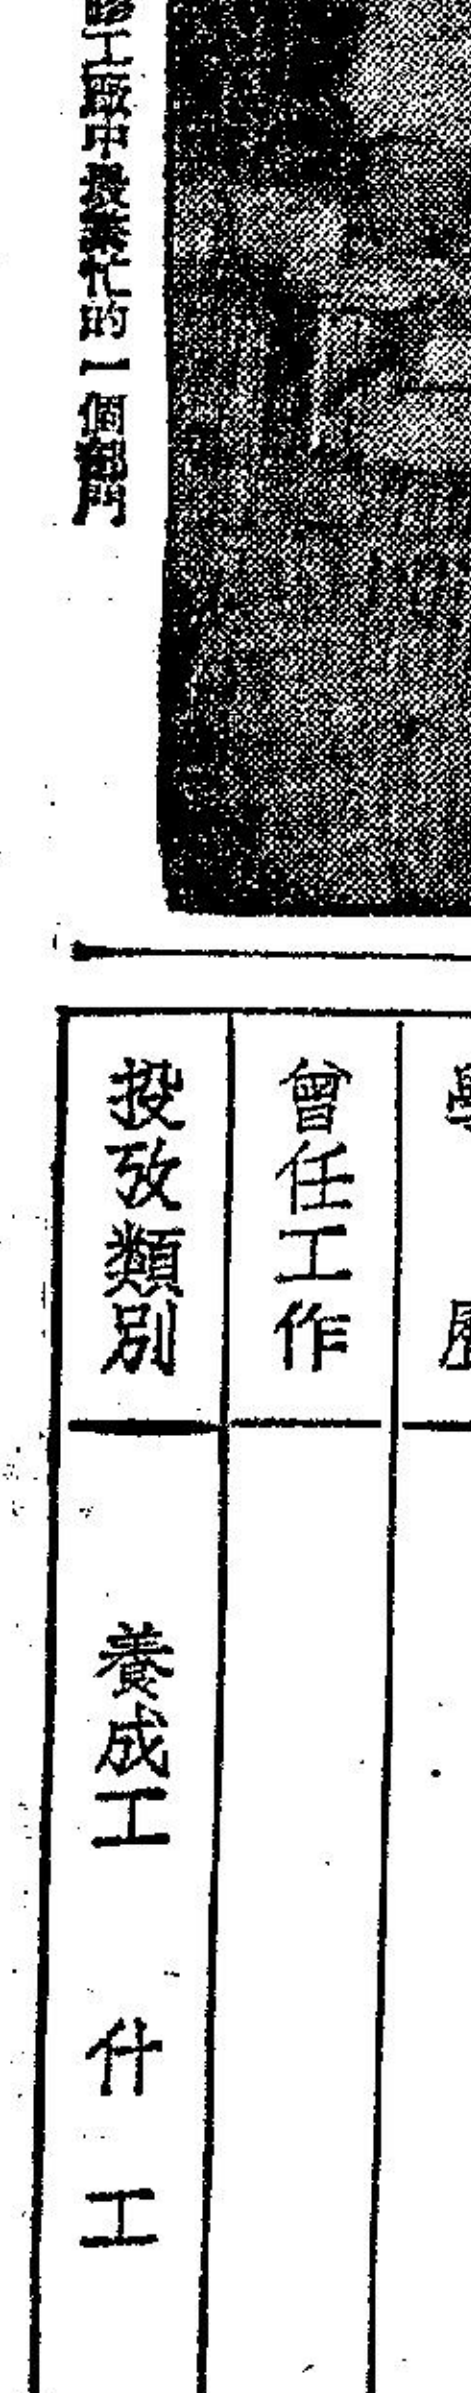 工廠中最繁忙的一個部門
曾任工作
投攷類別
養成工　什工